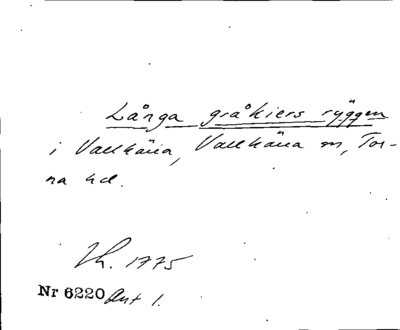 Långa gråkiers ryggen
i Vallkärra, Vallkärra sn, Tor-
na hd.
Lh. 1775
Nr 6220 Akt 1.